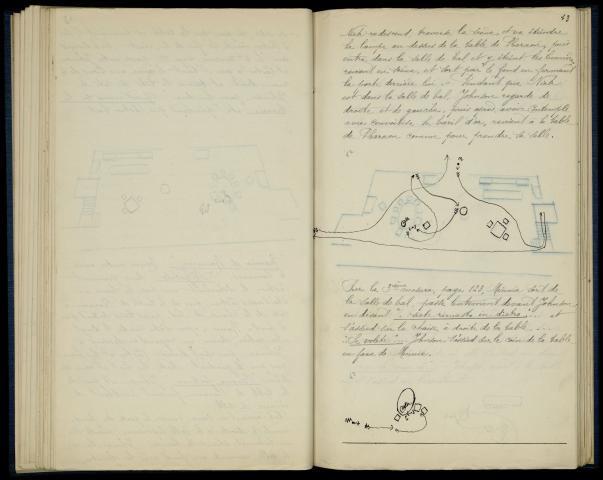 43
Nick redescend, traverse la scène, et va éteindre
la lampe au dessus de la table de Pharaon, puis
entre dans la salle de bal et y éteint les lumières
revient en scène, et sort par le fond en fermant
la porte derrière lui. Pendant que Nick
est dans la salle de bal, Johnson regarde de
droite et de gauche, puis après avoir contemplé
avec convoitise le baril d'or, revient à la table
de Pharaon comme pour prendre la selle.
Sur la 3ième mesure, page 123, Minnie sort de
la salle de bal, passe lentement devant Johnson
en disant " resto rimasto in dietro"... et
s'assied sur la chaise à droite de la table...
"Se volete"... Johnson s'assied sur le coin de la table
en face de Minnie.